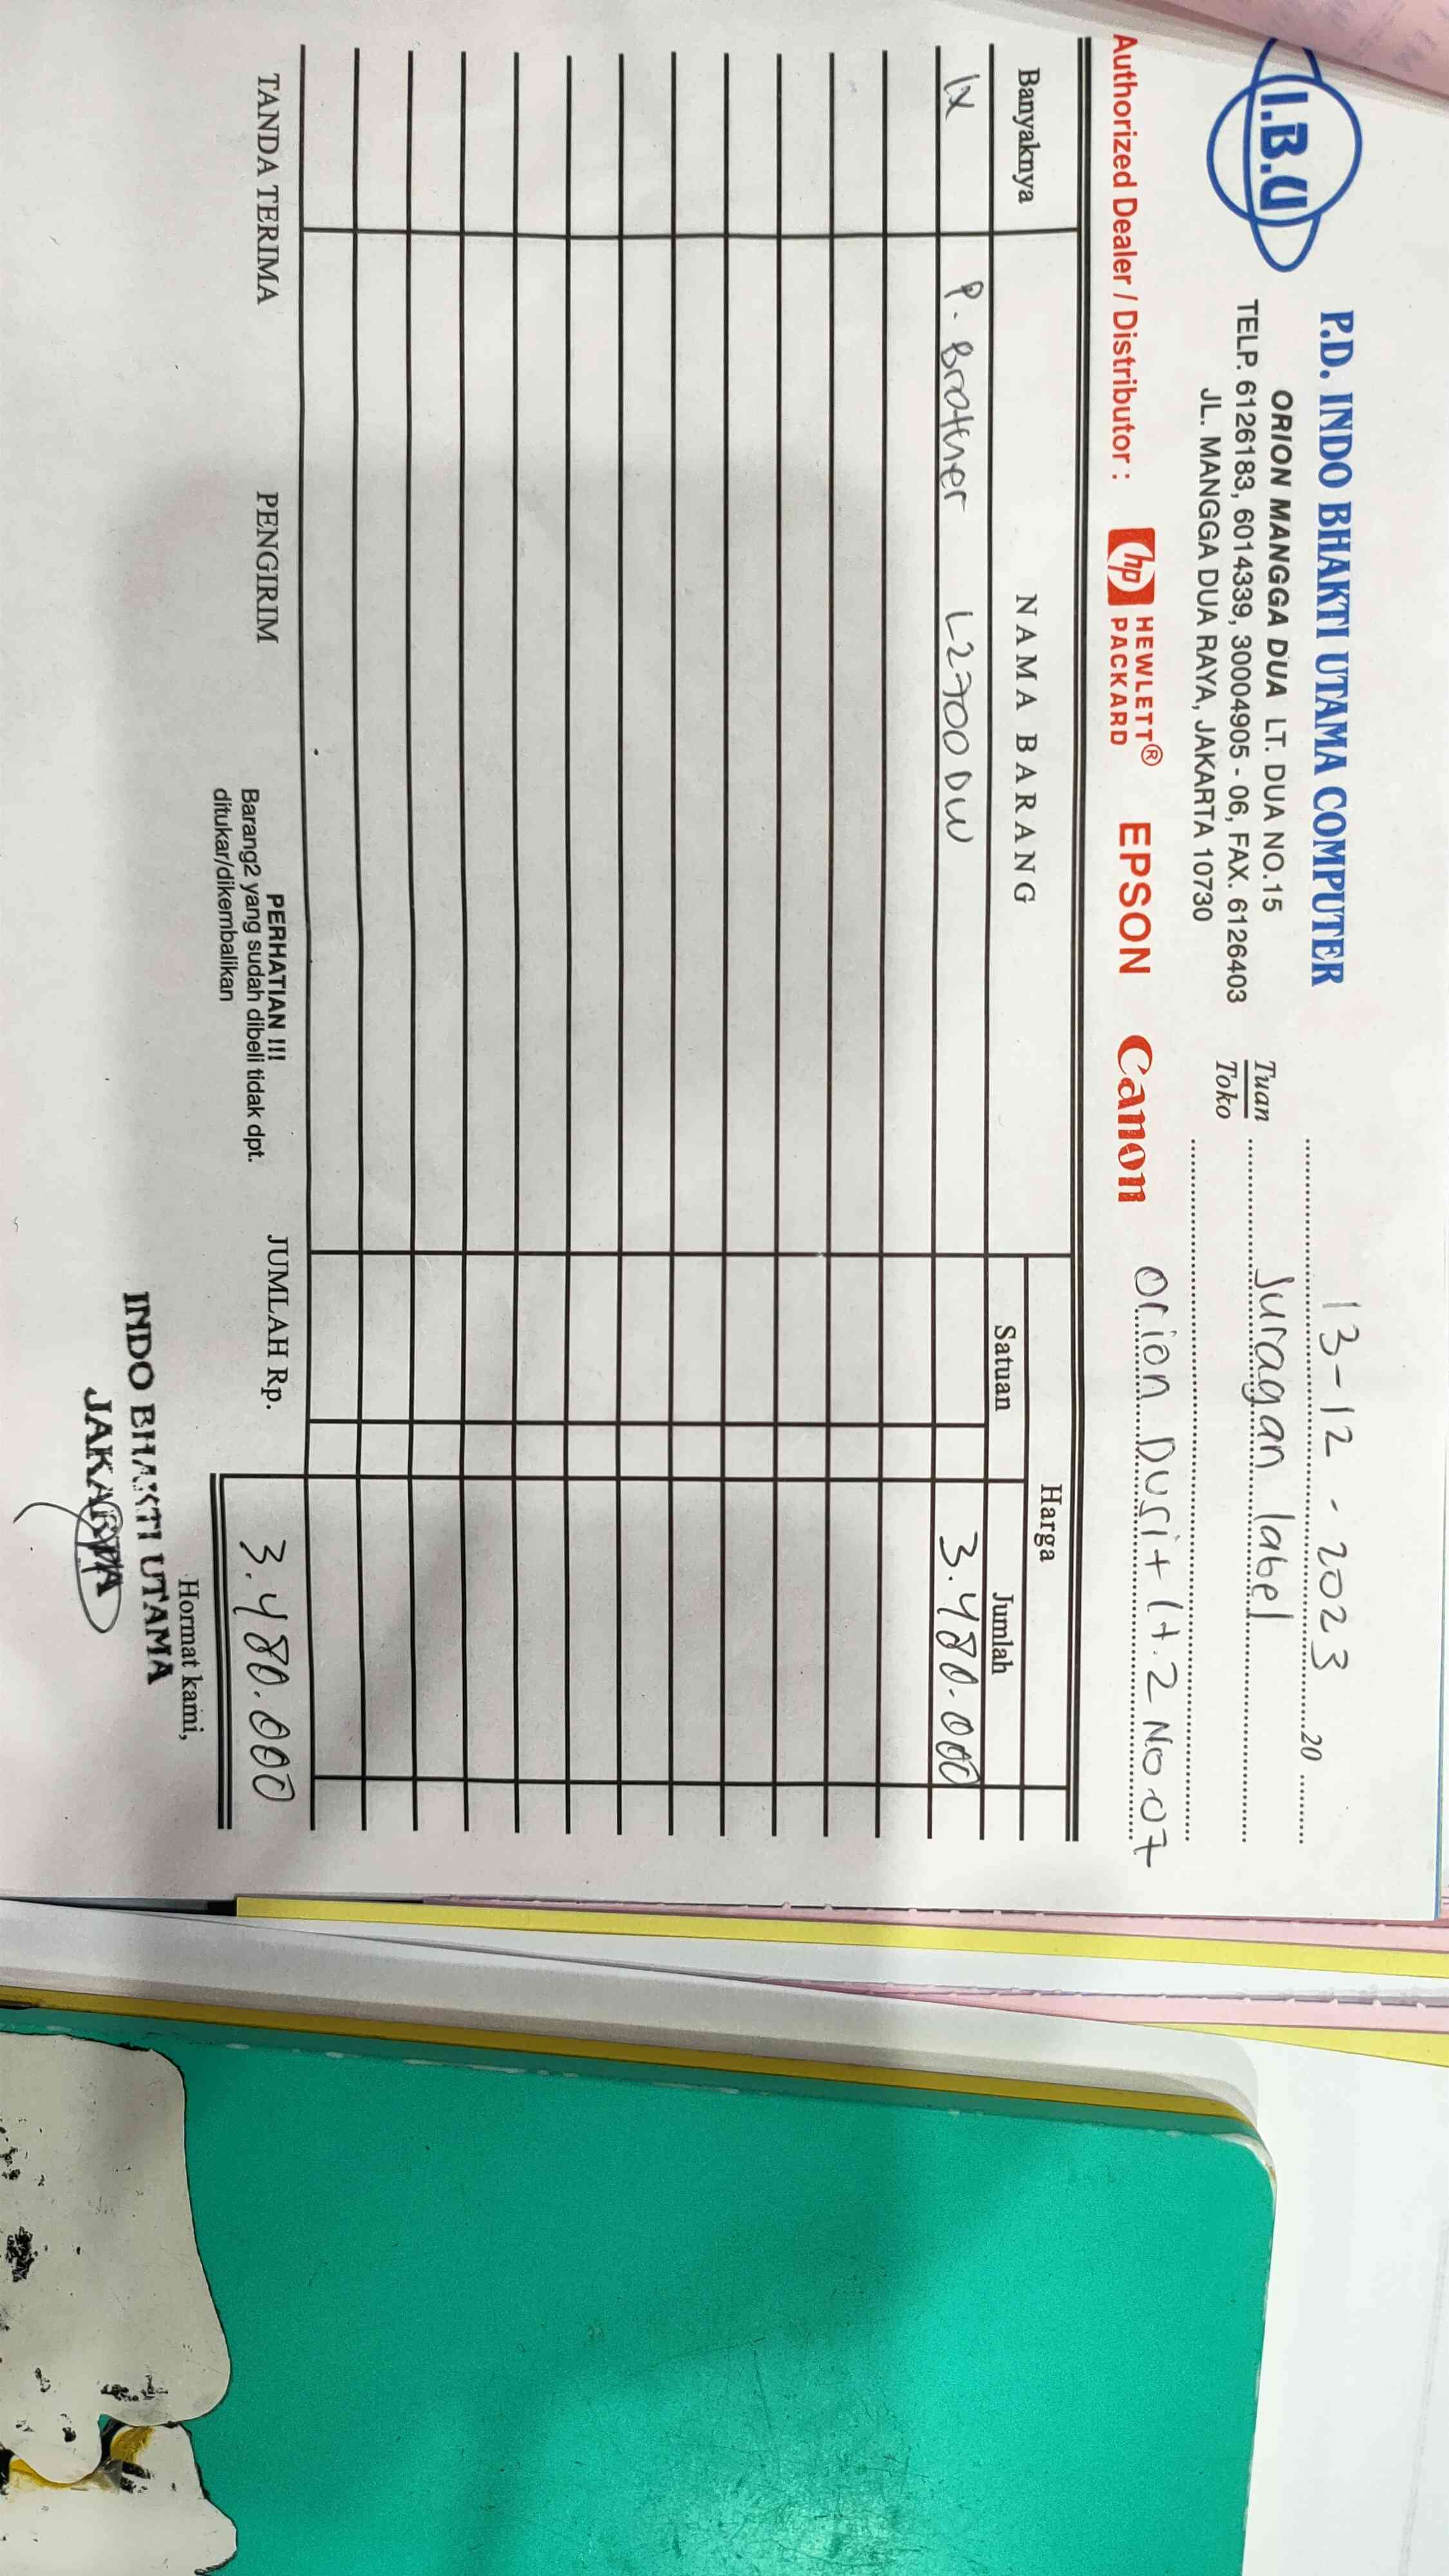 I.B.U
P.D. INDO BHAKTI UTAMA COMPUTER
ORION MANGGA DUA LT. DUA NO.15
TELP. 6126183, 6014339, 30004905 - 06, FAX. 6126403
JL. MANGGA DUA RAYA, JAKARTA 10730
13-12-2023 20
Tuan
Toko
Juragan label
Authorized Dealer / Distributor : hp HEWLETT® PACKARD EPSON Canon
Orion Dusit lt.2 No.07
Banyaknya NAMA BARANG Harga
Satuan Jumlah
1x P. Brother L2700DW 3.480.000
TANDA TERIMA PENGIRIM
PERHATIAN !!!
Barang2 yang sudah dibeli tidak dpt.
ditukar/dikembalikan
JUMLAH Rp. 3.480.000
Hormat kami,
INDO BHAKTI UTAMA
JAKARTA